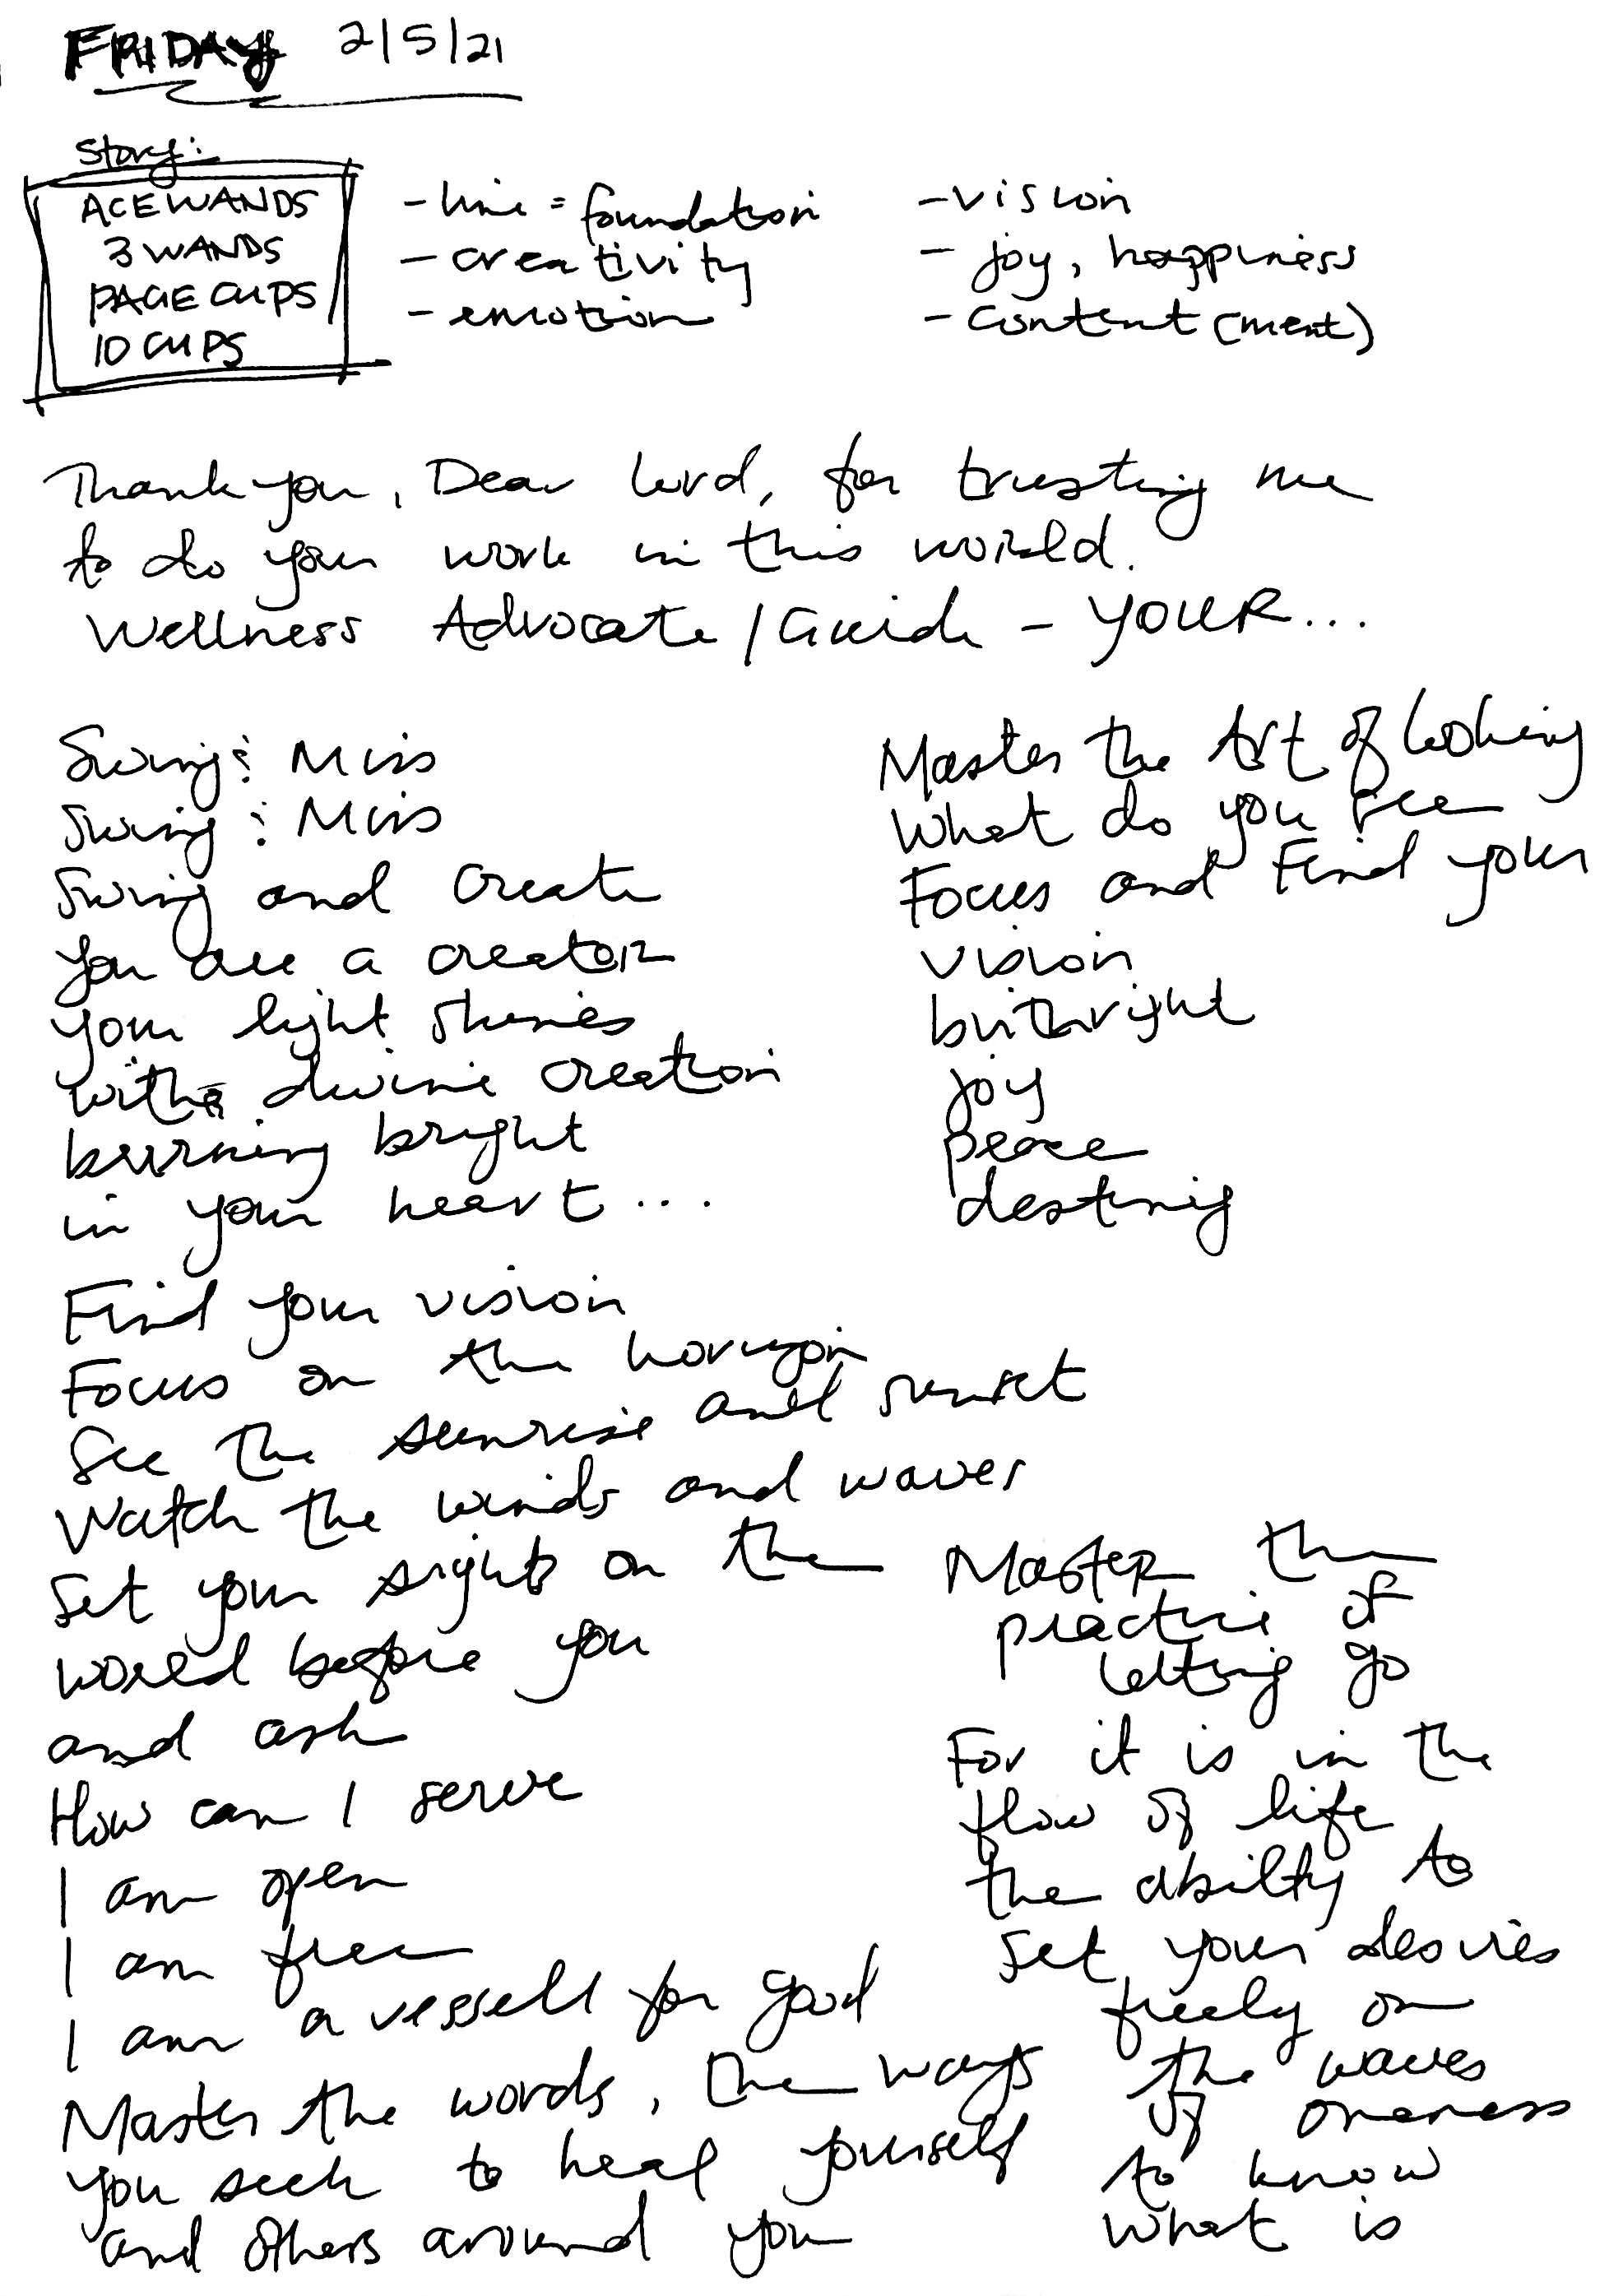 FRIDAY 2/5/21
Story:
ACE WANDS
3 WANDS
PAGE CUPS
10 CUPS
- line = foundation
- creativity
- emotion
- vision
- joy, happiness
- content (ment)
Thank you, Dear Lord, for trusting me
to do your work in this world.
Wellness Advocate / Guide - YOUR...
Swing & Miss
Swing & Miss
Swing and create
You are a creator
your light shines
with divine creation
burning bright
in your heart ....
Find your vision
Focus on the horizon
See the sunrise and sunset
Watch the winds and waves
Set your sights on the
world before you
and ask
How can I serve
I am open
I am free
I am a vessell for good
Master the words, the ways
you seek to heal yourself
and others around you
Master the Art of looking
What do you see
Focus and Find your
vision
birthright
joy
peace
destiny
Master the
practice of
letting go
For it is in the
flow of life
the ability to
set your desires
freely on
the waves
of oneness
to know
what is